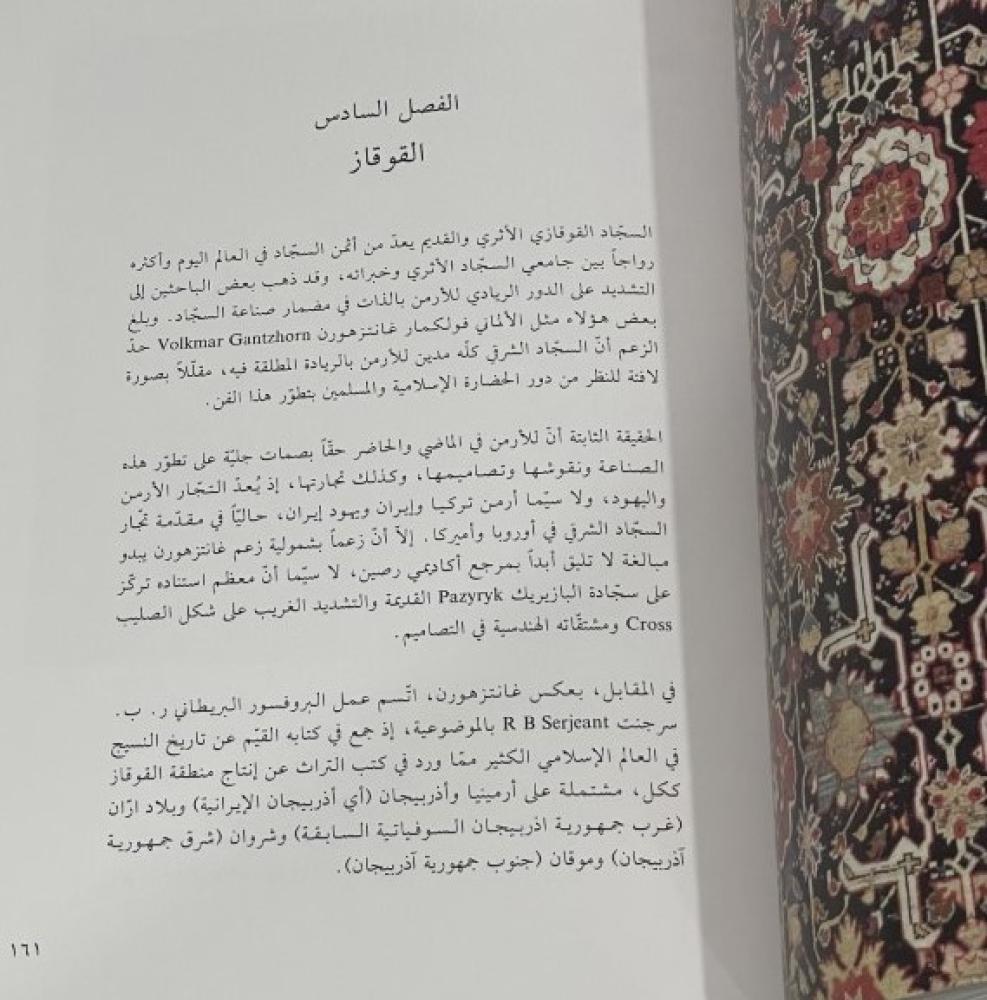 الفصل السادس
القوقاز
السجّاد القوقازي الأثري والقديم يعدّ من أثمن السجّاد في العالم اليوم وأكثره
رواجاً بين جامعي السجّاد الأثري وخبرائه، وقد ذهب بعض الباحثين إلى
التشديد على الدور الريادي للأرمن بالذات في مضمار صناعة السجّاد. وبلغ
بعض هؤلاء مثل الألماني فولكمار غانتزهورن Volkmar Gantzhorn حدّ
الزعم أنّ السجّاد الشرقي كلّه مدين للأرمن بالريادة المطلقة فيه، مقلّلاً بصورة
لافتة للنظر من دور الحضارة الإسلامية والمسلمين بتطوّر هذا الفن.
الحقيقة الثابتة أنّ للأرمن في الماضي والحاضر حقّاً بصمات جليّة على تطوّر هذه
الصناعة ونقوشها وتصاميمها، وكذلك تجارتها، إذ يُعدّ التجّار الأرمن
واليهود، ولا سيّما أرمن تركيا وإيران ويهود إيران، حاليّاً في مقدّمة تجّار
السجّاد الشرقي في أوروبا وأميركا. إلاّ أنّ زعماً بشمولية زعم غانتزهورن يبدو
مبالغة لا تليق أبداً بمرجع أكاديمي رصين، لا سيّما أنّ معظم استناده تركّز
على سجّادة البازيريك Pazyryk القديمة والتشديد الغريب على شكل الصليب
Cross ومشتقّاته الهندسية في التصاميم.
في المقابل، بعكس غانتزهورن، اتّسم عمل البروفسور البريطاني ر. ب.
سرجنت R B Serjeant بالموضوعية، إذ جمع في كتابه القيّم عن تاريخ النسيج
في العالم الإسلامي الكثير ممّا ورد في كتب التراث عن إنتاج منطقة القوقاز
ككل، مشتملة على أرمينيا وأذربيجان (أي أذربيجان الإيرانية) وبلاد ارّان
(غرب جمهورية اذربيجان السوفياتية السابقة) وشروان (شرق جمهورية
آذربيجان) وموقان (جنوب جمهورية آذربيجان).
١٦١